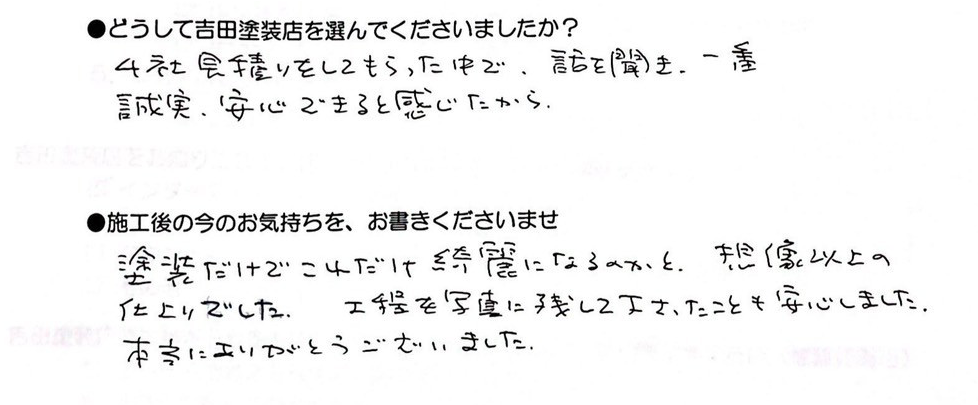 ●どうして吉田塗装店を選んでくださいましたか？
4社見積りをしてもらった中で、話を聞き、一番
誠実、安心できると感じたから。
●施工後の今のお気持ちを、お書きくださいませ
塗装だけでこれだけ綺麗になるのかと、想像以上の
仕上りでした。 工程を写真に残して下さったことも安心しました。
本当にありがとうございました。